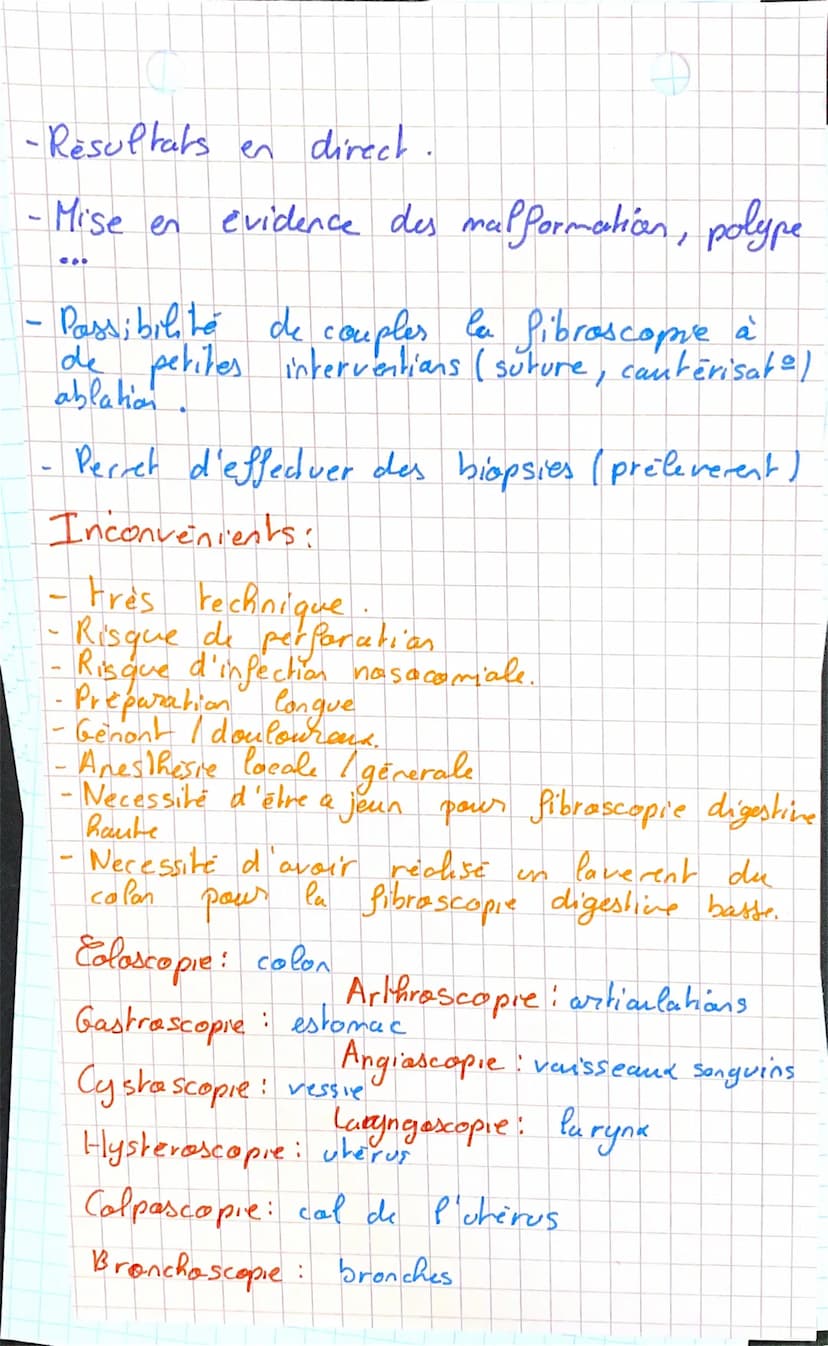 - Résultats en direct.
- Mise en évidence des malformation, polype
...
- Possibilité de couples la fibroscopie à
de petites interventions (suture, cautérisat°)
ablation.
- Permet d'effectuer des biopsies (prélèvement)
Inconvénients :
- très technique.
- Risque de perforation
- Risque d'infection nosocomiale.
- Préparation longue
- Gênant / douloureux.
- Anesthésie locale / générale
- Necessité d'être a jeun pour fibroscopie digestive
haute
- Necessité d'avoir réalisé un lavement du
colon pour la fibroscopie digestive basse.
Coloscopie : colon
Arthroscopie : articulations
Gastroscopie : estomac
Angioscopie : vaisseaux sanguins
Cystoscopie : vessie
Laryngoscopie : larynx
Hysteroscopie : utérus
Colposcopie : col de l'utérus
Bronchoscopie : bronches